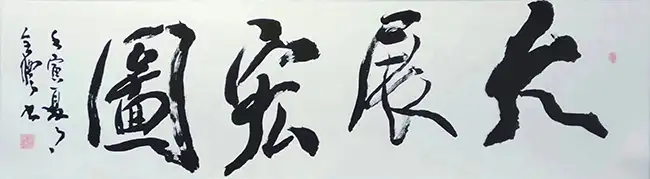 大展宏圖
壬寅夏月
书